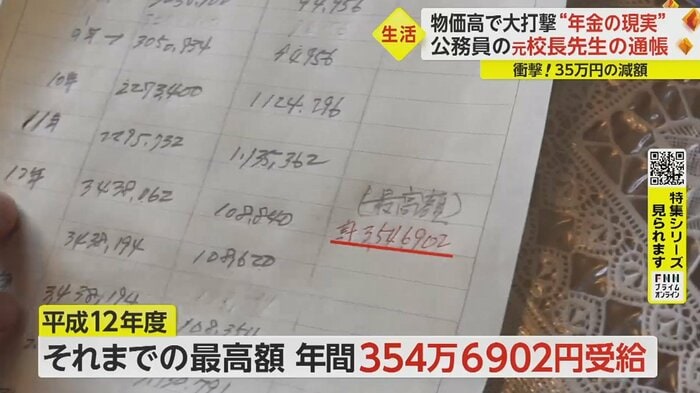 生活
物価高で大打撃“年金の現実”
公務員の元校長先生の通帳
衝撃!35万円の減額
特集シリーズ
見られます
FNN
プライム
オンライン
94,956
9年〜 3050,954 94,956
10年 2273,400 1124,296
11年 2295,732 1,135,362
12年 3438,062 108,840 (最高額)
計3,546902
3438,194 108,620
3438,194
平成12年度
それまでの最高額 年間354万6902円受給